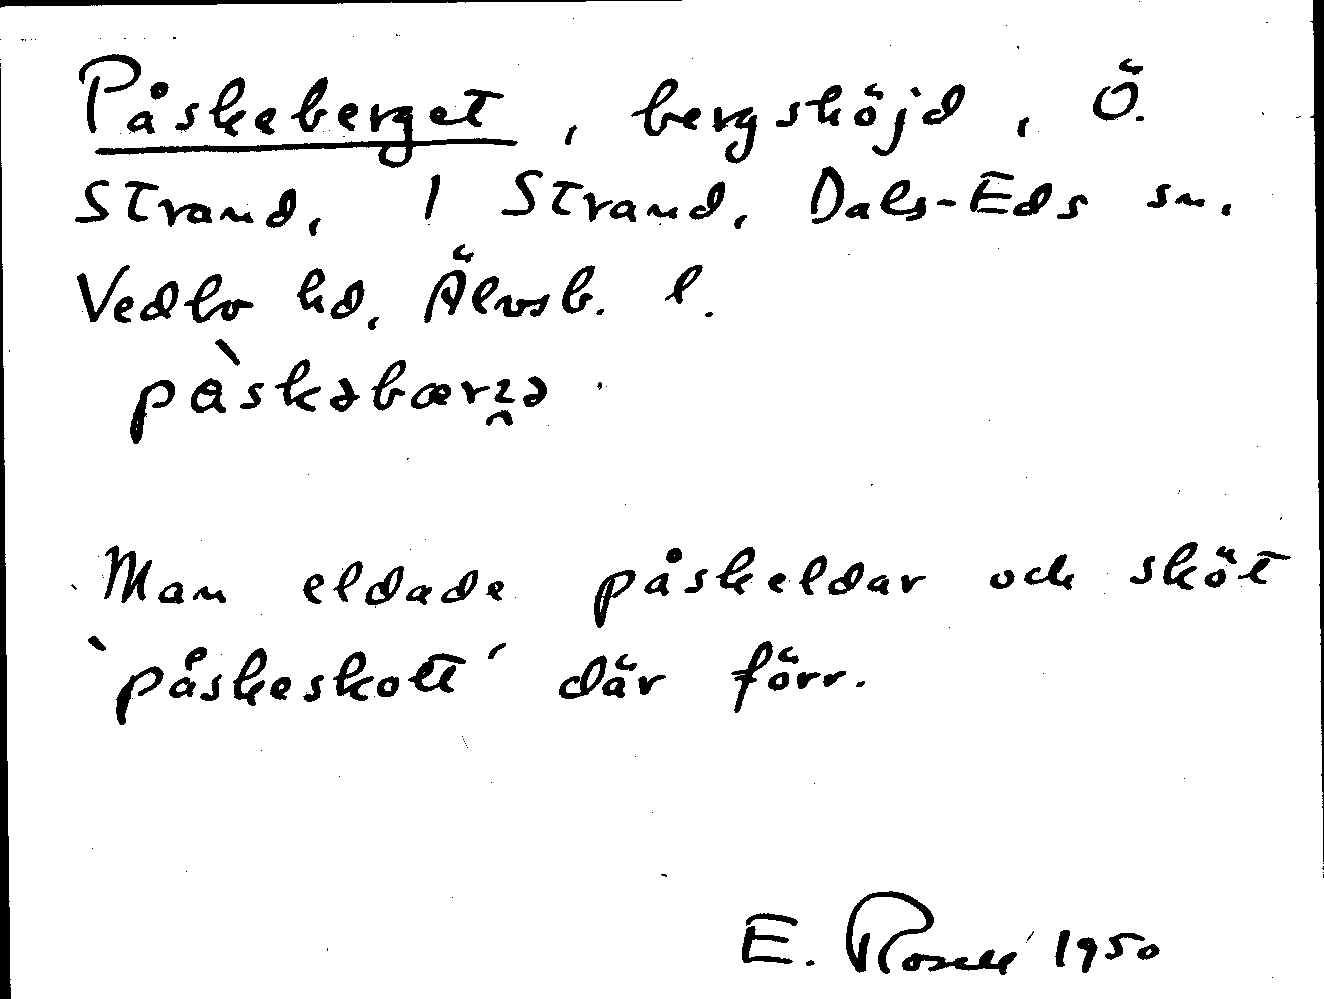 Påskeberget, bergshöjd, Ö.
Strand, 1 Strand, Dals-Eds sn.
Vedbo hd, Älvsb. l.
pàskəbærʒ̑ə.
Man eldade påskeldar och sköt
`påskeskott´ där förr.
E. Rosell 1950